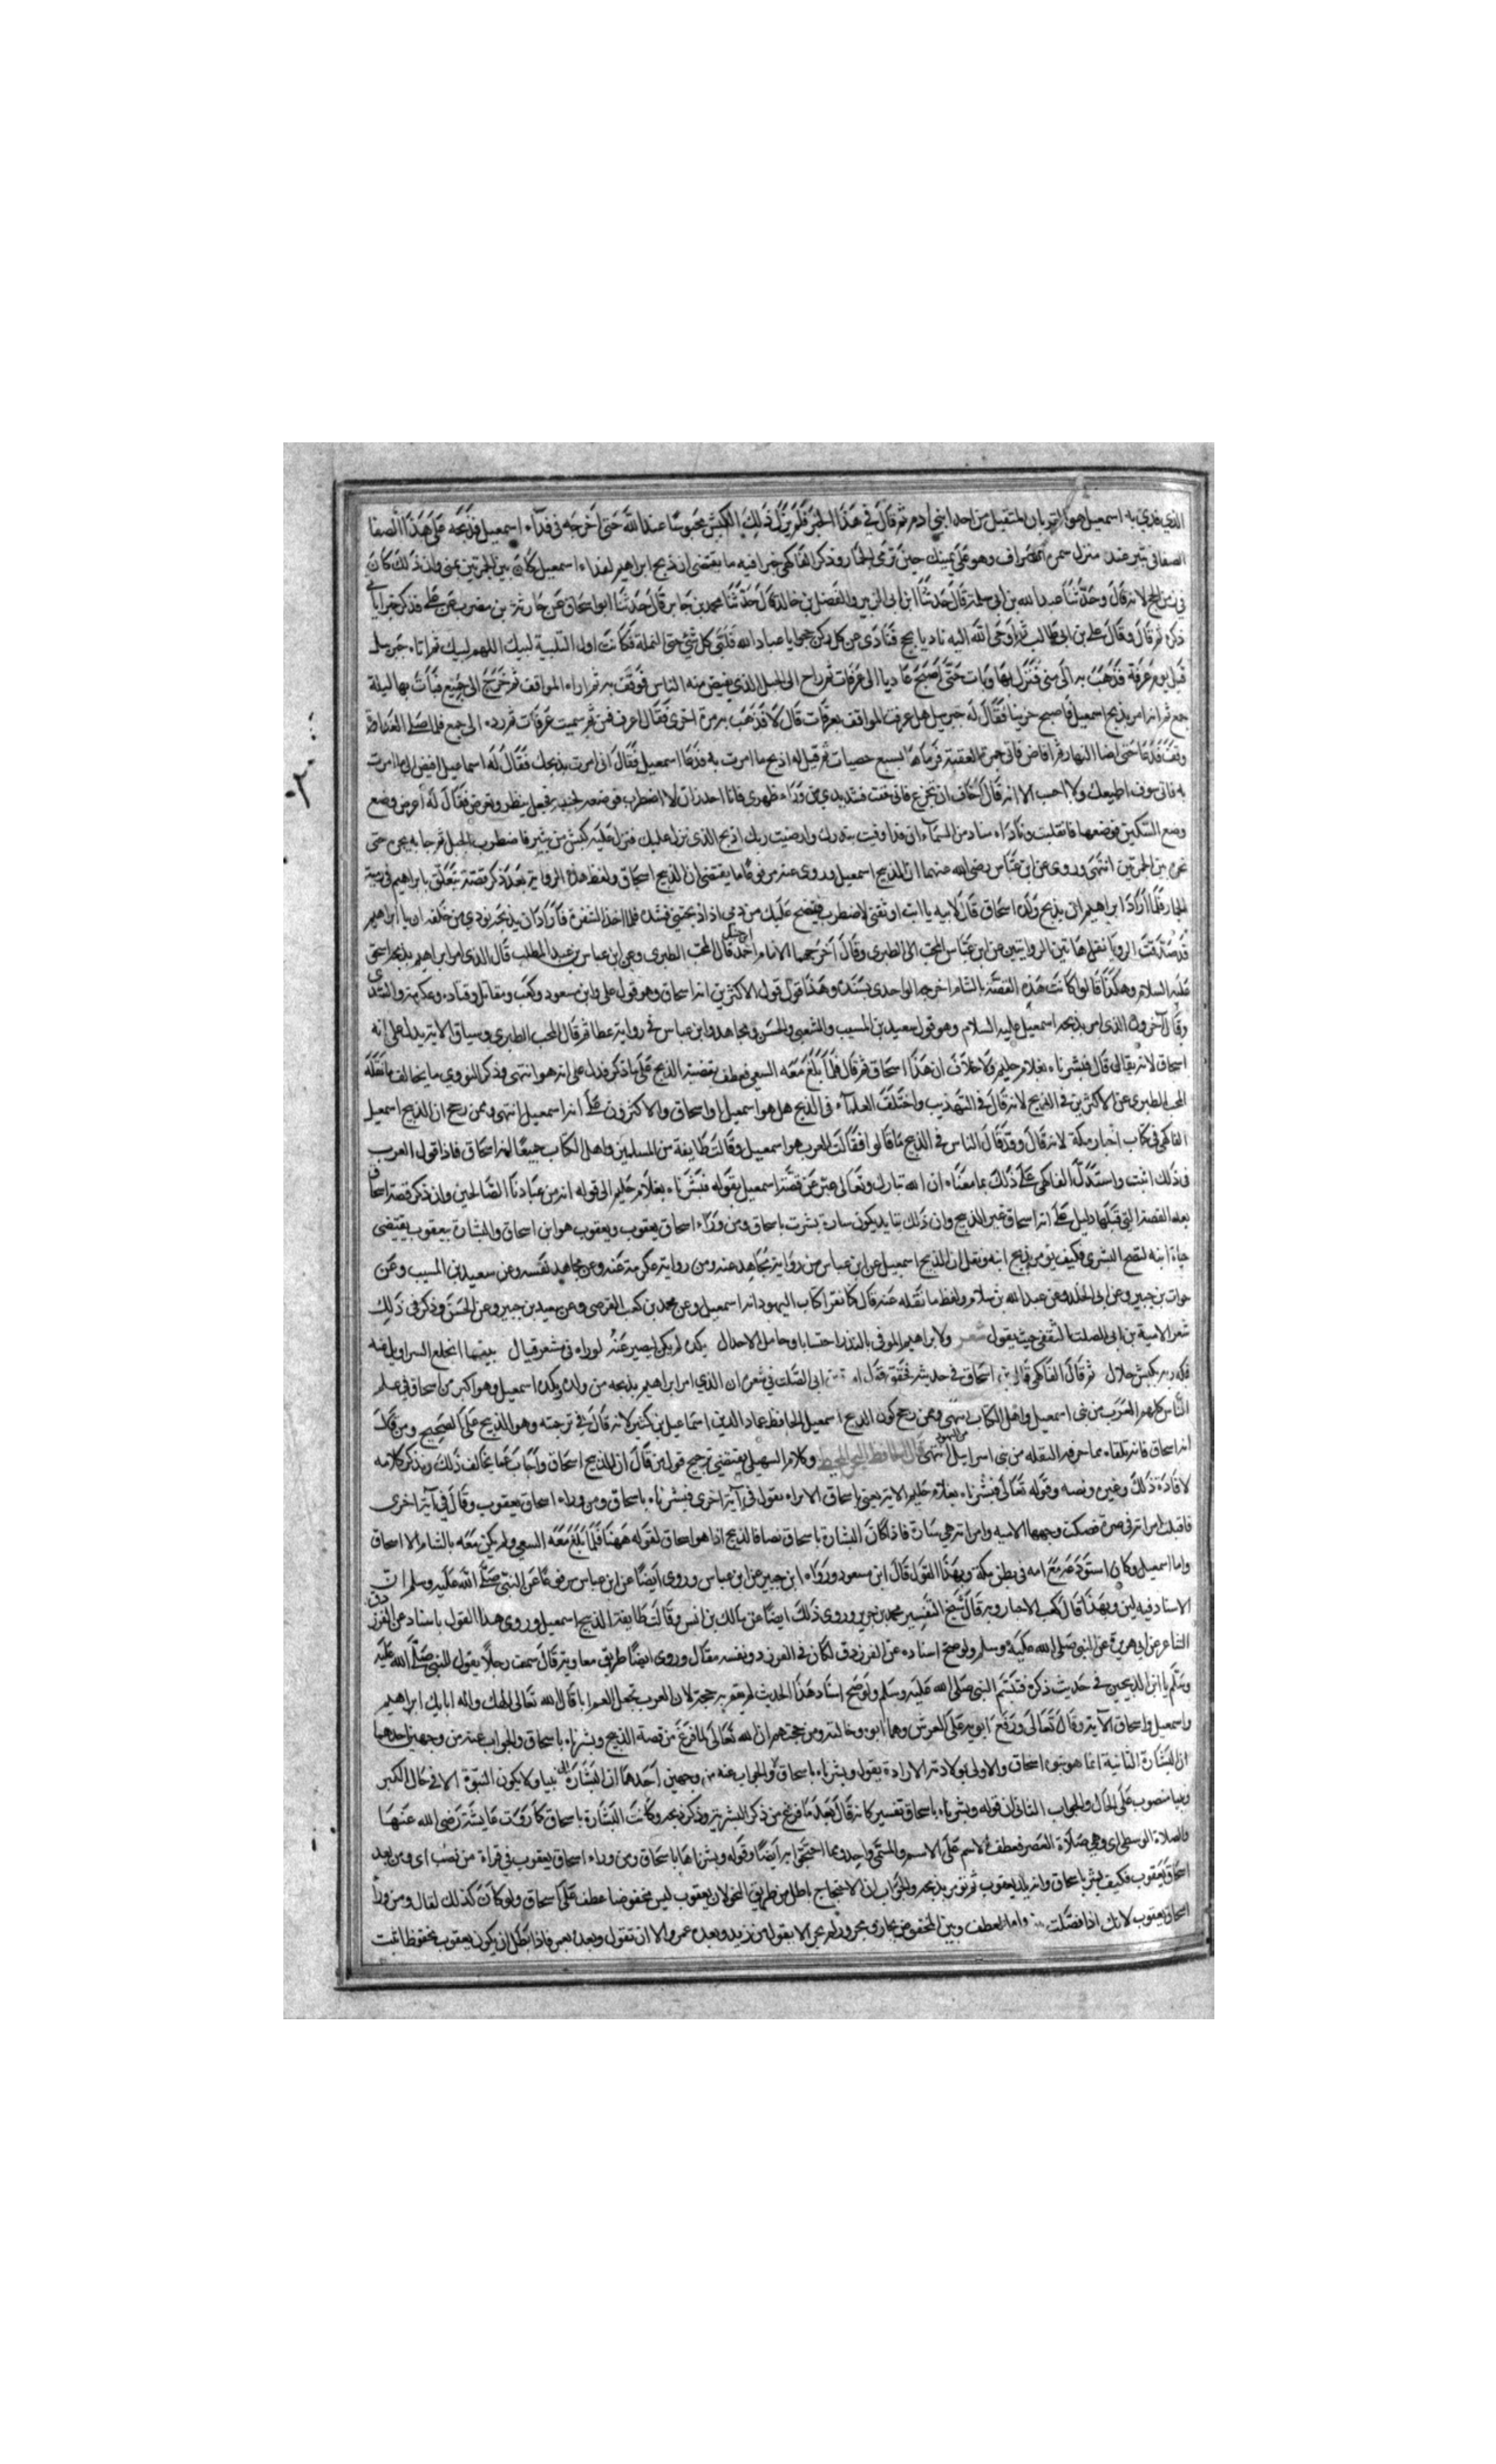 الذي فدي به اسمعيل هو القربان المتقبل من احد ابني ادم ثم قال في هذا الخبر فلم يزل ذلك الكبش محبوسا عند الله حتى اخرجه في فداء اسمعيل فذبحه على هذا الصفا
الصفا في ثبير عند منزل سمرة الصراف وهو على يمينك حين ترمي الجمار وذكر الفاكهي خبرا فيه ما يقتضي ان ذبح ابراهيم لفداء اسمعيل كان بين الجمرتين بمنى وان ذلك كان
في زمن الحج لانه قال وحدثنا عبد الله بن ابي سلمة قال حدثنا ابن ابي الزبير والفضل بن خالد قال حدثنا محمد بن جابر قال حدثنا ابو اسحاق عن حارثة بن مضرب عن علي فذكر خبرا ياتي
ذكره ثم قال وقال علي بن ابي طالب ثم اوحى الله اليه ناد يا بالحج فنادى عن كل ركن حجوا يا عباد الله فلبى كل شئ حتى النملة فكانت اول التلبية لبيك اللهم لبيك ثم اتاه جبريل
قبل يوم عرفة فذهب به الى منى فنزل بها وبات حتى اصبح غاديا الى عرفات ثم راح الى الجبل الذي يفيض منه الناس فوقف به ثم اراه المواقف ثم خرج الى جمع فبات بها ليلة
جمع ثم انه امر بذبح اسمعيل فاصبح حزينا فقال له جبريل هل عرفت المواقف بعرفات قال لا فذهب به مرة اخرى فقال اعرف فمن ثم سميت عرفات ثم رده الى جمع فلما صلى الغداة
وقف فدعا حتى اضا النهار ثم افاض فاتى جمرة العقبة فرماها بسبع حصيات ثم قيل له اذبح ما امرت به فدعا اسمعيل فقال اني امرت بذبحك فقال له اسماعيل افض الى ما امرت
به فاني سوف اطيعك ولا احب الا انه قال اخاف ان تجزع فاني خفت فشد يدي من وراء ظهري فانا احدر ان لا اضطرب فوضعه لجنبه فجعل ينظر ويعرض فقال له اعرض وضع
وضع السكين فوضعها فانقلبت وناداه مناد من السماء ان قد اوفيت بنذرك وارضيت ربك اذبح الذي نزل عليك فنزل عليه كبش من ثبير فاضطرب الجبل ثم جا به يجره حتى
نحره بين الجمرتين انتهى وروى عن ابن عباس رضي الله عنهما ان الذبيح اسمعيل وروى عنه مرفوعا ما يقتضي ان الذبيح اسحاق ولفظ هذه الرواية بعد ذكر قصة تتعلق بابراهيم في رمية
الجمار فلما اراد ابراهيم ان يذبح ولده اسحاق قال لابيه يا ابت اوثقني لا اضطرب فينضح عليك من دمي اذا ذبحتني فشده فلما اخذ الشفرة فاراد ان يذبحه نودي من خلفه ان يا ابراهيم
قد صدقت الرويا نقل هاتين الروايتين عن ابن عباس المحب الطبري وقال اخرجهما الامام احمد بن حنبل قال المحب الطبري وعن ابن عباس بن عبد المطلب قال الذي امر ابراهيم بذبحه اسحق
عليه السلام وهكذا قالوا كانت هذه القصة بالشام اخرجه الواحدي بسنده وهذا قول قول الاكثرين انه اسحاق وهو قول علي وابن مسعود وكعب ومقاتل وقتاده وعكرمة والسدي
وقال آخرون الذي امر بذبحه اسمعيل عليه السلام وهو قول سعيد بن المسيب والشعبي والحسن ومجاهد وابن عباس في رواية عطا ثم قال المحب الطبري وسياق الاية يدل على انه
اسحاق لانه تعالى قال فبشرناه بغلام حليم ولا خلاف ان هذا اسحاق ثم قال فلما بلغ معه السعي فعطف بقضية الذبح على ما ذكر فدل على انه هو انتهى وذكر النووي ما يخالف ما نقله
المحب الطبري عن الاكثرين في الذبيح لانه قال في التهذيب واختلف العلماء في الذبيح هل هو اسمعيل او اسحاق والاكثرون على انه اسمعيل انتهى وممن رجح ان الذبيح اسمعيل
الفاكهي في كتاب اخبار مكة لانه قال وقد قال الناس في الذبيح ما قالوا فقالت العرب هو اسمعيل وقالت طايفة من المسلمين واهل الكتاب جميعا انه اسحاق فاذا قول العرب
في ذلك اثبت واستدل الفاكهي على ذلك بما معناه ان الله تبارك وتعالى عبر عن قصة اسمعيل بقوله فبشرناه بغلام حليم الى قوله انه من عبادنا الصالحين وان ذكر قصة اسحاق
بعد القصة التي قبلها دليل على انه اسحاق غير الذبيح وان ذلك يتايد بكون سارة بشرت باسحاق ومن وراء اسحاق يعقوب ويعقوب هو ابن اسحاق والبشارة بيعقوب يقتضي
حياة ابيه لتصح البشرى فكيف يؤمر بذبح ابنه ونقل ان الذبيح اسمعيل عن ابن عباس من رواية مجاهد عنه ومن رواية عكرمة عنه وعن مجاهد نفسه وعن سعيد بن المسيب وعن
خوات بن جبير وعن ابي الخلد وعن عبد الله بن سلام ولفظ ما نقله عنه قال كنا نقرا كتاب اليهود انه اسمعيل وعن محمد بن كعب القرضي وعن سعيد بن جبير وعن الحسن وذكر في ذلك
شعرا لامية بن ابي الصلت الثقفي حيث يقول شعر ولابراهيم الموفي بالنذر احتسابا وحامل الاحذال بكره لم يكن ليصبر عنه لو راه في معشر قبال بينما انخلع السراويل عنه
فكه ربه بكبش حلال ثم قال الفاكهي قال ابن اسحاق في حديثه فحقق قول امية بن ابي الصلت في شعره ان الذي امر ابراهيم بذبحه من ولده بكره اسمعيل وهو اكبر من اسحاق في علم
الناس كلهم العرب من بني اسمعيل واهل الكتاب انتهى وممن رجح كون الذبيح اسمعيل الحافظ عماد الدين اسماعيل بن كثير لانه قال في ترجمته وهو الذبيح على الصحيح ومن قال
انه اسحاق فانه تلقاه مما حرفه النقله من بني اسرايل انتهى وكلام السهيلي يقتضي ترجيح قول من قال ان الذبيح اسحاق واجاب عما يخالف ذلك ويذكر كلامه
لافادة ذلك وغيره ونصه وقوله تعالى فبشرناه بغلام حليم الاية يعني اسحاق الا تراه يقول في آية اخرى فبشرناه باسحاق ومن وراء اسحاق يعقوب وقال في آية اخرى
فاقبلت امراته في صرة فصكت وجهها الاية وامراته هي سارة فاذا كان البشارة باسحاق نصا فالذبيح اذا هو اسحاق لقوله ههنا فلما بلغ معه السعي ولم يكن معه بالشام الا اسحاق
واما اسمعيل وكان استودعه مع امه في بطن مكة وبهذا القول قال ابن مسعود ورواه ابن جبير عن ابن عباس وروى ايضا عن ابن عباس مرفوعا عن النبي صلى الله عليه وسلم ان
الاسناد فيه لين وبهذا قال كعب الاحبار وبه قال شيخ التفسير محمد بن جرير وروى ذلك ايضا عن مالك بن انس وقالت طايفة الذبيح اسمعيل وروى هذا القول باسناد عن الفرزدق
الشاعر عن ابي هريرة عن النبي صلى الله عليه وسلم ولو صح اسناده عن الفرزدق لكان في الفرزدق نفسه مقال وروى ايضا طريق معاوية قال سمعت رجلا يقول للنبي صلى الله عليه
وسلم يا ابن الذبيحين في حديث ذكره فتبسم النبي صلى الله عليه وسلم ولو صح اسناد هذا الحديث لم يقم به حجة لان العرب تجعل العم ابا قال الله تعالى الهك واله ابايك ابراهيم
واسمعيل واسحاق الآية وقال تعالى ورفع ابويه على العرش وهما ابوه وخالته ومن حجتهم ان الله تعالى لما فرغ من قصة الذبيح وبشرناه باسحاق والجواب عنه من وجهين احدهما
ان البشارة الثانية انما هو بنبوة اسحاق والاولى بولادته الا تراه يقول وبشرناه باسحاق والجواب عنه من وجهين احدهما ان البشارة نبيا ولا يكون النبوة الا في حال الكبر
ونبيا منصوب على الحال والجواب الثاني ان قوله وبشرناه باسحاق تفسير كانه قال بعد ما فرغ من ذكر المبشر به وذكر ذبحه وكانت البشارة باسحاق كما روت عايشة رضي الله عنها
والصلاة الوسطى اي وهي صلاة العصر فعطف الاسم على الاسم والمسمى واحد ومما احتجوا به ايضا وقوله وبشرناها باسحاق ومن وراء اسحاق يعقوب في قراة من نصب اي ومن بعد
اسحاق يعقوب فكيف يبشر باسحاق وانه يلد يعقوب ثم يؤمر بذبحه والجواب ان الاحتجاج باطل من طريق النحو لان يعقوب ليس مخفوضا عطف على اسحاق ولو كان كذلك لقال ومن وراء
اسحاق بيعقوب لانك اذا فصلت واو العطف وبين المخفوض بجار ومجرور لم يجز الا بقوله من زيد وبعده عمرو الا ان تقول وبعده بعمرو فاذا بطل ان يكون يعقوب مخفوظا ثبت